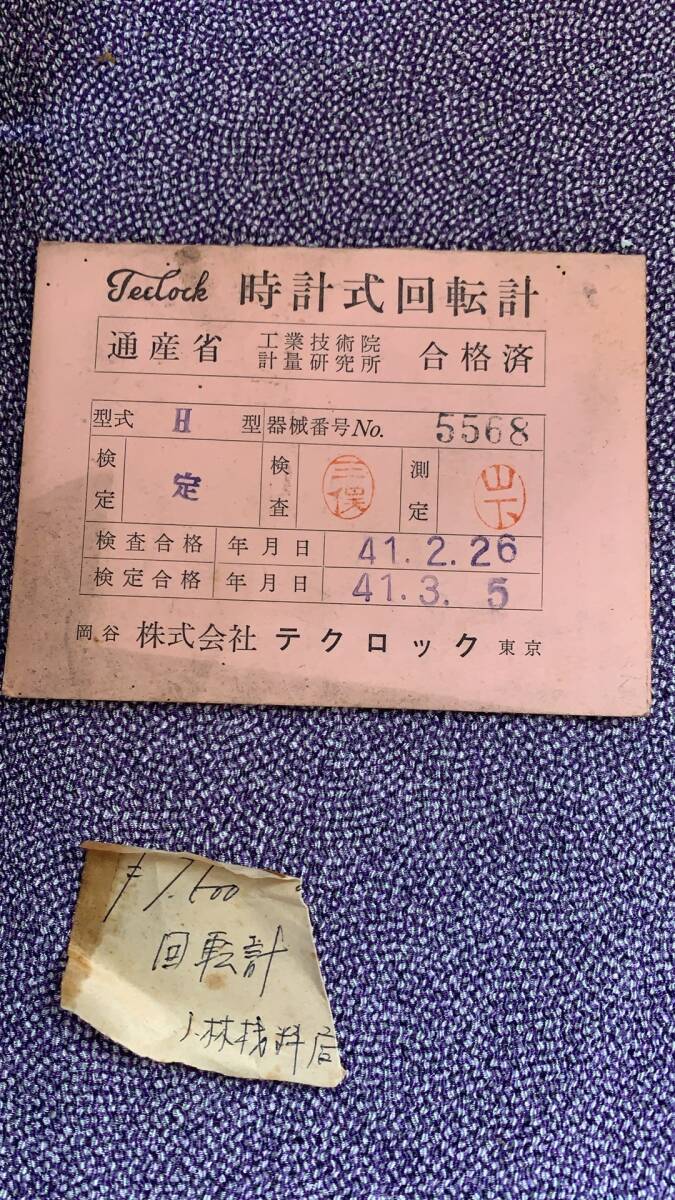 Teclock 時計式回転計
通産省 工業技術院 計量研究所 合格済
型式 H 型 器械番号No. 5568
検定 定 検査 三俣 測定 山下
検査合格 年月日 41.2.26
検定合格 年月日 41.3.5
岡谷 株式会社 テクロック 東京
¥7.500
回転計
小林材料店